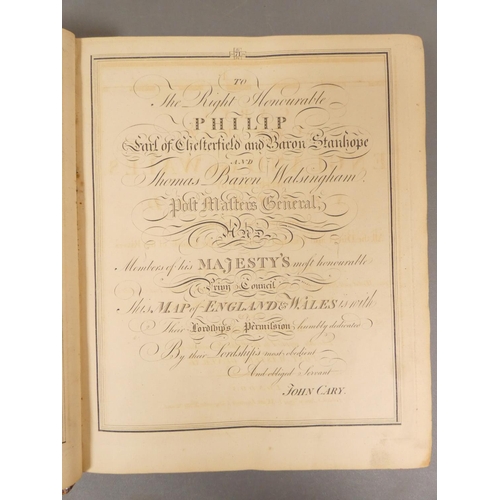 TO
The Right Honourable
PHILIP
Earl of Chesterfield and Baron Stanhope
AND
Thomas Baron Walsingham
Post Masters General,
AND
Members of his MAJESTY'S most honourable
Privy Council
This MAP of ENGLAND & WALES is with
Their Lordships Permission humbly dedicated
By their Lordships most obedient
And obliged Servant
JOHN CARY.